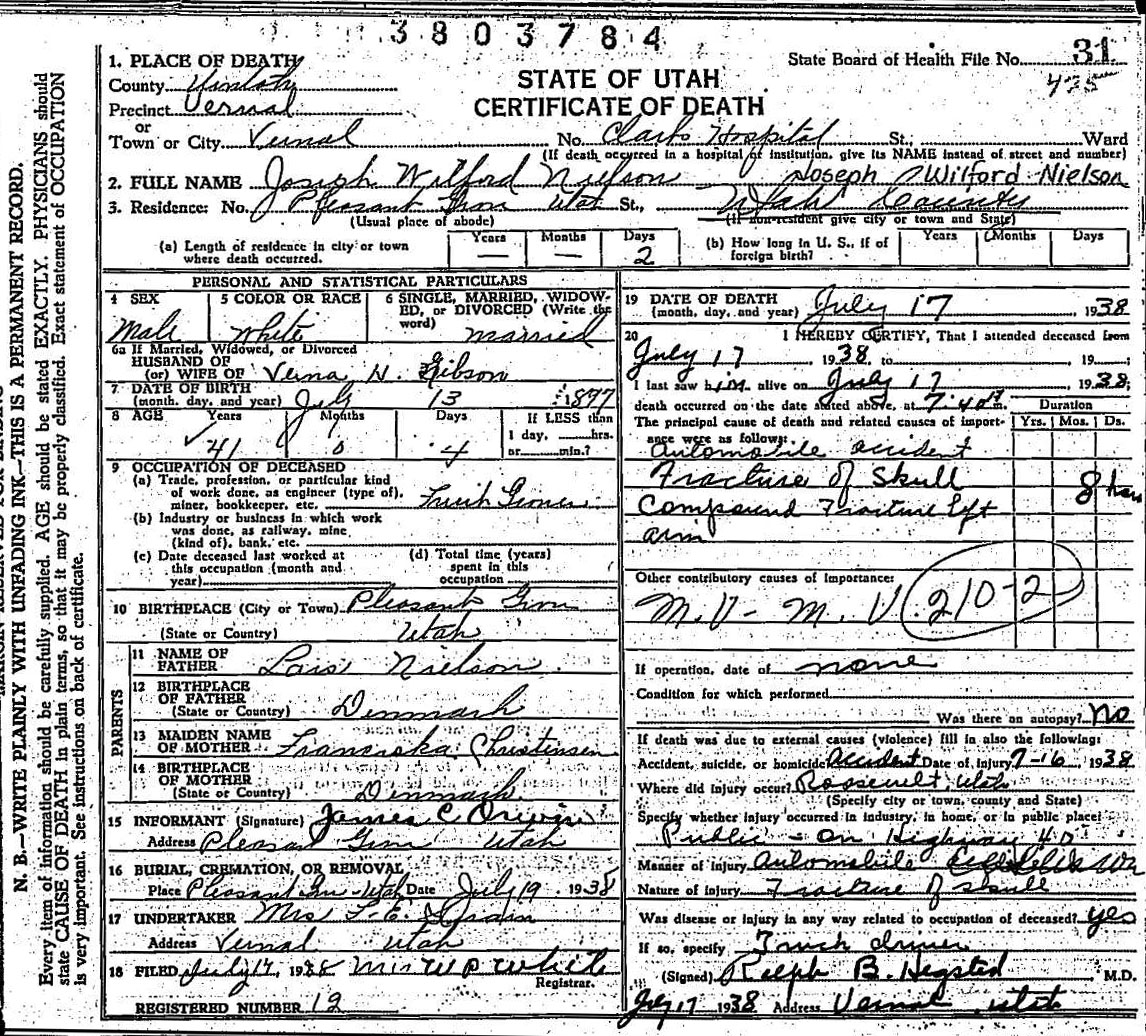 3803784
State Board of Health File No. 31
STATE OF UTAH
CERTIFICATE OF DEATH
1. PLACE OF DEATH
County Uintah
Precinct Vernal
or
Town or City Vernal No. Clark Hospital St., Ward
(If death occurred in a hospital or institution, give its NAME instead of street and number)
2. FULL NAME Joseph Wilford Nielson Joseph Wilford Nielson
3. Residence: No. Pleasant Grove Utah St., Utah County
(Usual place of abode) (If non-resident give city or town and State)
(a) Length of residence in city or town where death occurred. Years — Months — Days 2
(b) How long in U. S., if of foreign birth? Years Months Days
PERSONAL AND STATISTICAL PARTICULARS
4 SEX Male
5 COLOR OR RACE White
6 SINGLE, MARRIED, WIDOWED, OR DIVORCED (Write the word) married
6a If Married, Widowed, or Divorced
HUSBAND OF
(or) WIFE OF Verna N. Gibson
7 DATE OF BIRTH
(month, day, and year) July 13 1897
8 AGE Years 41 Months 0 Days 4 If LESS than 1 day, hrs. or min.?
9 OCCUPATION OF DECEASED
(a) Trade, profession, or particular kind
of work done, as engineer (type of),
miner, bookkeeper, etc. Fruit Grower
(b) Industry or business in which work
was done, as railway, mine
(kind of), bank, etc.
(c) Date deceased last worked at
this occupation (month and
year)
(d) Total time (years)
spent in this
occupation
10 BIRTHPLACE (City or Town) Pleasant Grove
(State or Country) Utah
PARENTS
11 NAME OF
FATHER Lars Nielson
12 BIRTHPLACE
OF FATHER
(State or Country) Denmark
13 MAIDEN NAME
OF MOTHER Franciska Christensen
14 BIRTHPLACE
OF MOTHER
(State or Country) Denmark
15 INFORMANT (Signature) James C.
Address Pleasant Grove Utah
16 BURIAL, CREMATION, OR REMOVAL
Place Pleasant Gro Utah Date July 19 1938
17 UNDERTAKER Mrs
Address Vernal Utah
18 FILED July 17, 1938 Mrs W P White
Registrar.
REGISTERED NUMBER 12
19 DATE OF DEATH
(month, day, and year) July 17, 1938
20 I HEREBY CERTIFY, That I attended deceased from
July 17 1938, to 19
I last saw him alive on July 17, 1938;
death occurred on the date stated above, at 7:40 m.
Duration
Yrs. Mos. Ds.
The principal cause of death and related causes of import-
ance were as follows:
Automobile accident
Fracture of Skull 8 hrs
Compound Fracture left
arm
Other contributory causes of importance:
M.V - M.V 210-2
If operation, date of none
Condition for which performed
Was there an autopsy? No
If death was due to external causes (violence) fill in also the following:
Accident, suicide, or homicide? Accident Date of injury 7-16, 1938
Where did injury occur? Roosevelt, Utah
(Specify city or town, county and State)
Specify whether injury occurred in industry, in home, or in public place:
Public - On Highway 40
Manner of injury Automobile
Nature of injury Fracture of skull
Was disease or injury in any way related to occupation of deceased? yes
If so, specify Truck driver
(Signed) Ralph B. Hegsted M.D.
July 17 1938 Address Vernal Utah
N. B.—WRITE PLAINLY WITH UNFADING INK—THIS IS A PERMANENT RECORD.
Every item of information should be carefully supplied. AGE should be stated EXACTLY. PHYSICIANS should
state CAUSE OF DEATH in plain terms, so that it may be properly classified. Exact statement of OCCUPATION
is very important. See instructions on back of certificate.